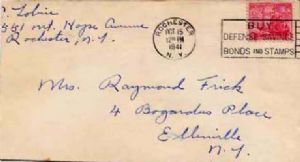 P. Tobin
551 Mt. Hope Avenue
Rochester, N.Y.
ROCHESTER
OCT 15
12 PM
1941
N. Y.
BUY
DEFENSE SAVINGS
BONDS AND STAMPS
Mrs. Raymond Frick
4 Bogardus Place
Ellinville
N.Y.